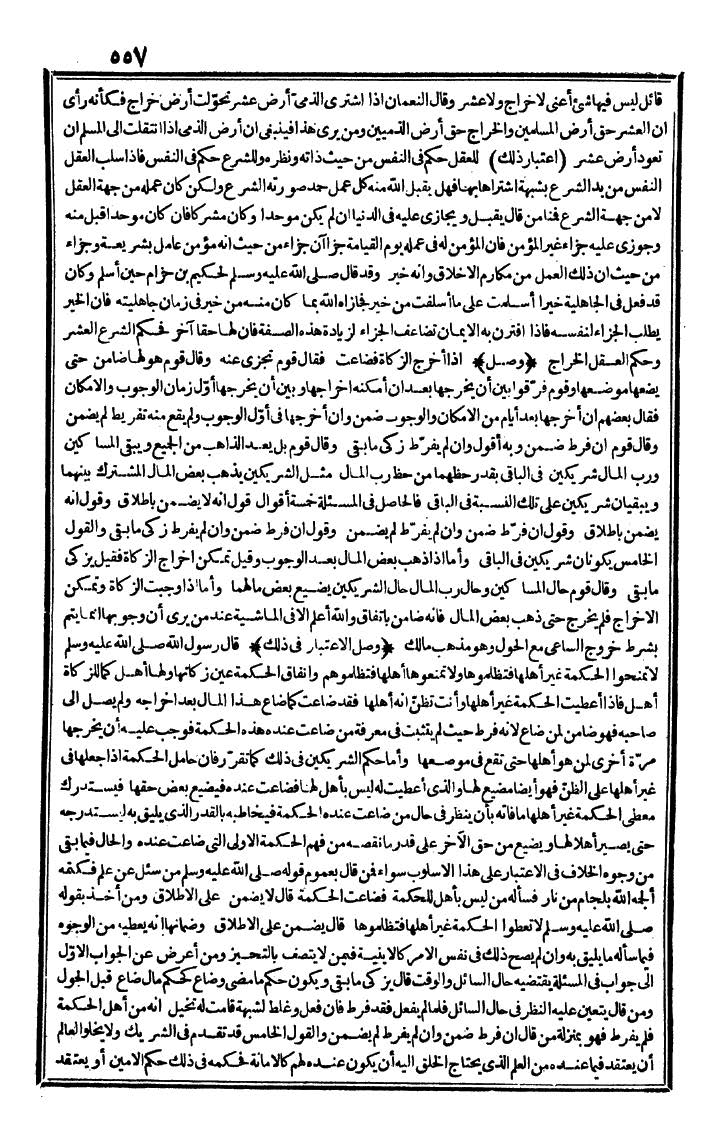 ٥٥٧
قائل ليس فيها شئ أعنى لا خراج ولا عشر وقال النعمان اذا اشترى الذمى أرض عشر تحولت أرض خراج فكأنه رأى
ان العشر حق أرض المسلمين والخراج حق أرض الذميين ومن يرى هذا فينبغى ان أرض الذمى اذا انتقلت الى المسلم ان
تعود أرض عشر (اعتبار ذلك) للعقل حكم فى النفس من حيث ذاته ونظره وللشرع حكم فى النفس فاذا سلب العقل
النفس من يد الشرع بشبهة اشتراها بها فهل يقبل الله منه كل عمل حمد صورته الشرع ولكن كان عمله من جهة العقل
لا من جهة الشرع فمنا من قال يقبل ويجازى عليه فى الدنيا ان لم يكن موحدا وكان مشركا فان كان موحدا قبل منه
وجوزى عليه جزاء غير المؤمن فان المؤمن له فى عمله يوم القيامة جزاآن جزاء من حيث انه مؤمن عامل بشريعة وجزاء
من حيث ان ذلك العمل من مكارم الاخلاق وانه خير وقد قال صلى الله عليه وسلم لحكيم بن حزام حين أسلم وكان
قد فعل فى الجاهلية خيرا أسلمت على ما أسلفت من خير فجازاه الله بما كان منه من خير فى زمان جاهليته فان الخير
يطلب الجزاء لنفسه فاذا اقترن به الايمان تضاعف الجزاء لزيادة هذه الصفة فان لها حقا آخر فحكم الشرع العشر
وحكم العقل الخراج ﴿وصل﴾ اذا أخرج الزكاة فضاعت فقال قوم تجزى عنه وقال قوم هو لها ضامن حتى
يضعها موضعها وقوم فرقوا بين أن يخرجها بعد ان أمكنه اخراجها وبين أن يخرجها أوّل زمان الوجوب والامكان
فقال بعضهم ان أخرجها بعد أيام من الامكان والوجوب ضمن وان أخرجها فى أوّل الوجوب ولم يقع منه تفريط لم يضمن
وقال قوم ان فرط ضمن وبه أقول وان لم يفرّط زكى ما بقى وقال قوم بل يعد الذاهب من الجميع ويبقى المساكين
ورب المال شريكين فى الباقى بقدر حظهما من حظ رب المال مثل الشريكين يذهب بعض المال المشترك بينهما
ويبقيان شريكين على تلك النسبة فى الباقى فالحاصل فى المسئلة خمسة أقوال قول انه لا يضمن باطلاق وقول انه
يضمن باطلاق وقول ان فرّط ضمن وان لم يفرّط لم يضمن وقول ان فرط ضمن وان لم يفرط زكى ما بقى والقول
الخامس يكونان شريكين فى الباقى وأما اذا ذهب بعض المال بعد الوجوب وقبل تمكن اخراج الزكاة فقيل يزكى
ما بقى وقال قوم حال المساكين وحال رب المال حال الشريكين يضيع بعض مالهما وأما اذا وجبت الزكاة وتمكن
الاخراج فلم يخرج حتى ذهب بعض المال فانه ضامن باتفاق والله أعلم الا فى الماشية عند من يرى أن وجوبها انما يتم
بشرط خروج الساعى مع الحول وهو مذهب مالك ﴿وصل الاعتبار فى ذلك﴾ قال رسول الله صلى الله عليه وسلم
لا تمنحوا الحكمة غير أهلها فتظلموها ولا تمنعوها أهلها فتظلموهم وانفاق الحكمة عين زكاتها ولها أهل كما للزكاة
أهل فاذا أعطيت الحكمة غير أهلها وأنت تظنّ انه أهلها فقد ضاعت كما ضاع هذا المال بعد اخراجه ولم يصل الى
صاحبه فهو ضامن لمن ضاع لانه فرط حيث لم يتثبت فى معرفة من ضاعت عنده هذه الحكمة فوجب عليه أن يخرجها
مرّة أخرى لمن هو أهلها حتى تقع فى موضعها وأما حكم الشريكين فى ذلك كما تقرّر فان حامل الحكمة اذا جعلها فى
غير أهلها على الظنّ فهو أيضا مضيع لها والذى أعطيت له ليس بأهل لها فضاعت عنده فيضيع بعض حقها فيستدرك
معطى الحكمة غير أهلها ما فاته بأن ينظر فى حال من ضاعت عنده الحكمة فيخاطبه بالقدر الذى يليق به ليستدرجه
حتى يصير أهلا لها ويضيع من حق الآخر على قدر ما نقصه من فهم الحكمة الاولى التى ضاعت عنده والحال فيما بقى
من وجوه الخلاف فى الاعتبار على هذا الاسلوب سواء فمن قال بعموم قوله صلى الله عليه وسلم من سئل عن علم فكتمه
ألجمه الله بلجام من نار فسأله من ليس بأهل للحكمة فضاعت الحكمة قال لا يضمن على الاطلاق ومن أخذ بقوله
صلى الله عليه وسلم لا تعطوا الحكمة غير أهلها فتظلموها قال يضمن على الاطلاق وضمانها انه يعطيه من الوجوه
فيما سأله ما يليق به وان لم يصح ذلك فى نفس الامر كالاينية فيمن لا يتصف بالتحيز ومن أعرض عن الجواب الاوّل
الى جواب فى المسئلة يقتضيه حال السائل والوقت قال يزكى ما بقى ويكون حكم ما مضى وضاع كحكم مال ضاع قبل الحول
ومن قال يتعين عليه النظر فى حال السائل فلما لم يفعل فقد فرط فان فعل وغلط لشبهة قامت له تخيل انه من أهل الحكمة
فلم يفرط فهو بمنزلة من قال ان فرط ضمن وان لم يفرط لم يضمن والقول الخامس قد تقدم فى الشريك ولا يخلو العالم
أن يعتقد فيما عنده من العلم الذى يحتاج الخلق اليه أن يكون عنده لهم كالامانة فحكمه فى ذلك حكم الامين أو يعتقد